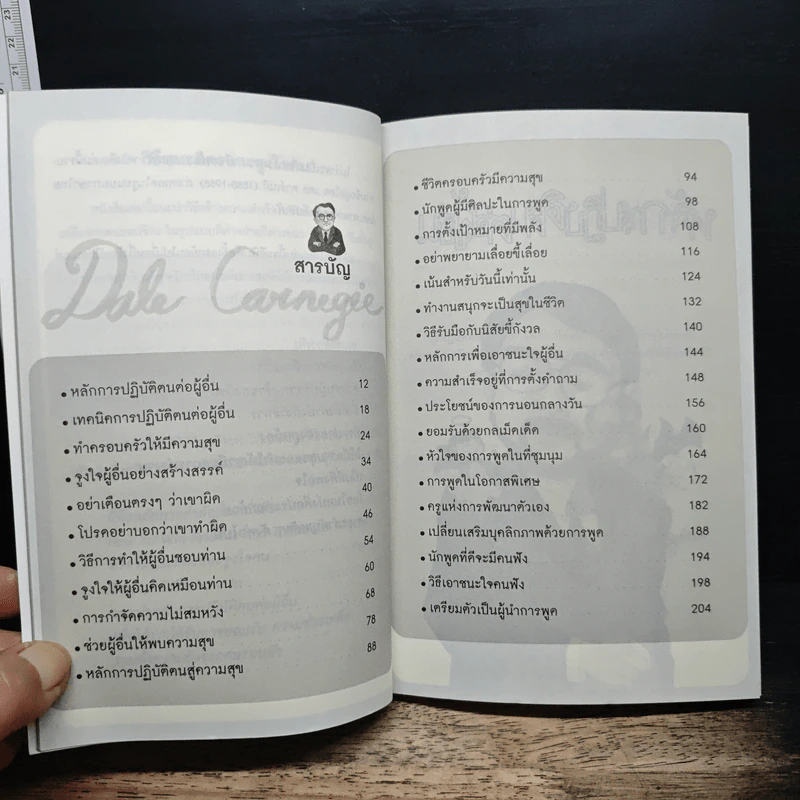 สารบัญ
Dale Carnegie
• หลักการปฏิบัติตนต่อผู้อื่น 12
• เทคนิคการปฏิบัติตนต่อผู้อื่น 18
• ทำครอบครัวให้มีความสุข 24
• จูงใจผู้อื่นอย่างสร้างสรรค์ 34
• อย่าเตือนตรงๆ ว่าเขาผิด 40
• โปรดอย่าบอกว่าเขาทำผิด 46
• วิธีการทำให้ผู้อื่นชอบท่าน 54
• จูงใจให้ผู้อื่นคิดเหมือนท่าน 60
• การกำจัดความไม่สมหวัง 68
• ช่วยผู้อื่นให้พบความสุข 78
• หลักการปฏิบัติตนสู่ความสุข 88
• ชีวิตครอบครัวมีความสุข 94
• นักพูดผู้มีศิลปะในการพูด 98
• การตั้งเป้าหมายที่มีพลัง 108
• อย่าพยายามเลื่อยขี้เลื่อย 116
• เน้นสำหรับวันนี้เท่านั้น 124
• ทำงานสนุกจะเป็นสุขในชีวิต 132
• วิธีรับมือกับนิสัยขี้กังวล 140
• หลักการเพื่อเอาชนะใจผู้อื่น 144
• ความสำเร็จอยู่ที่การตั้งคำถาม 148
• ประโยชน์ของการนอนกลางวัน 156
• ยอมรับด้วยกลเม็ดเด็ด 160
• หัวใจของการพูดในที่ชุมนุม 164
• การพูดในโอกาสพิเศษ 172
• ครูแห่งการพัฒนาตัวเอง 182
• เปลี่ยนเสริมบุคลิกภาพด้วยการพูด 188
• นักพูดที่ดีจะมีคนฟัง 194
• วิธีเอาชนะใจคนฟัง 198
• เตรียมตัวเป็นผู้นำการพูด 204
23
22
21